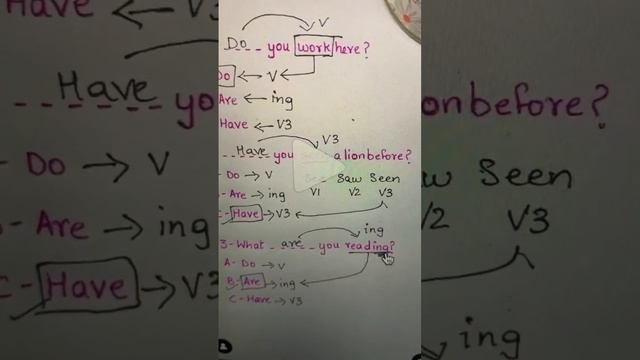 V
Do you work here?
Do ← V
Are ← ing
Have ← V3
V3
Have you a lion before?
Do → V
See Saw Seen
B- Are → ing V1 V2 V3
C- Have → V3
ing
3- What are you reading?
A- Do → V
B- Are → ing
C- Have → V3